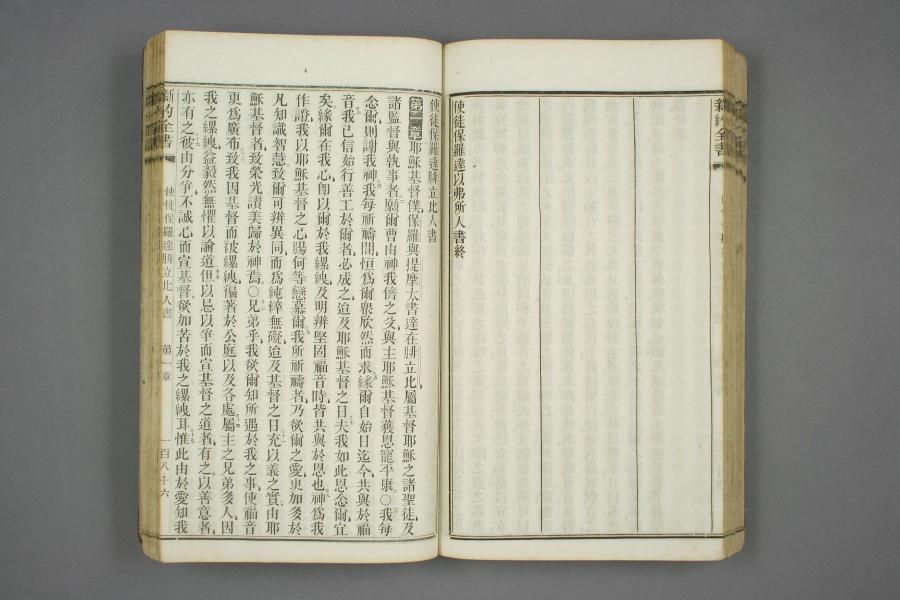 新約全書
使徒保羅達以弗所人書終
使徒保羅達腓立比人書
第一章耶穌基督僕保羅與提摩太書達在腓立比屬基督耶穌之諸聖徒及
諸監督與執事者願爾曹由神我儕之父與主耶穌基督獲恩寵平康〇我每
念爾則謝我神我每祈禱間恒爲爾衆欣然而求緣爾自始日迄今共與於福
音我已信始行善工於爾者必成之迨及耶穌基督之日夫我如此思念爾宜
矣緣爾在我心卽以爾於我縲絏及明辨堅固福音時皆共與於恩也神爲我
作證我以耶穌基督之心腸何等戀慕爾我所祈禱者乃欲爾之愛更加多於
凡知識智慧致爾可辨異同而爲純粹無礙迨及基督之日充以義之實由耶
穌基督者致榮光讚美歸於神焉〇兄弟乎我欲爾知所遇於我之事使福音
更爲廣布致我因基督而被縲絏徧著於公庭以及各處屬主之兄弟多人因
我之縲絏益毅然無懼以諭道但以忌以爭而宣基督之道者有之以善意者
亦有之彼由分爭不誠心而宣基督欲加苦於我之縲絏耳惟此由於愛知我
新約全書
使徒保羅達腓立比人書
第一章
一百八十六